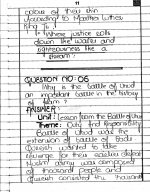 11
colour of their skin
According to Martin Luther
King Jr.
"Where justice rolls
down like water and
righteousness like a
stream"
QUESTION NO: 06
Why is the battle of Uhud
an important battle in the history
of Islam?
ANSWER:
Unit: Lesson from the Battle of Uhud
Theme: Duty and Responsibility
Battle of Uhud was the
extension of battle of Badr.
Quraish wanted to take
revenge for their
Muslim army was composed
of thousand people and
Quraish consisted the thousand